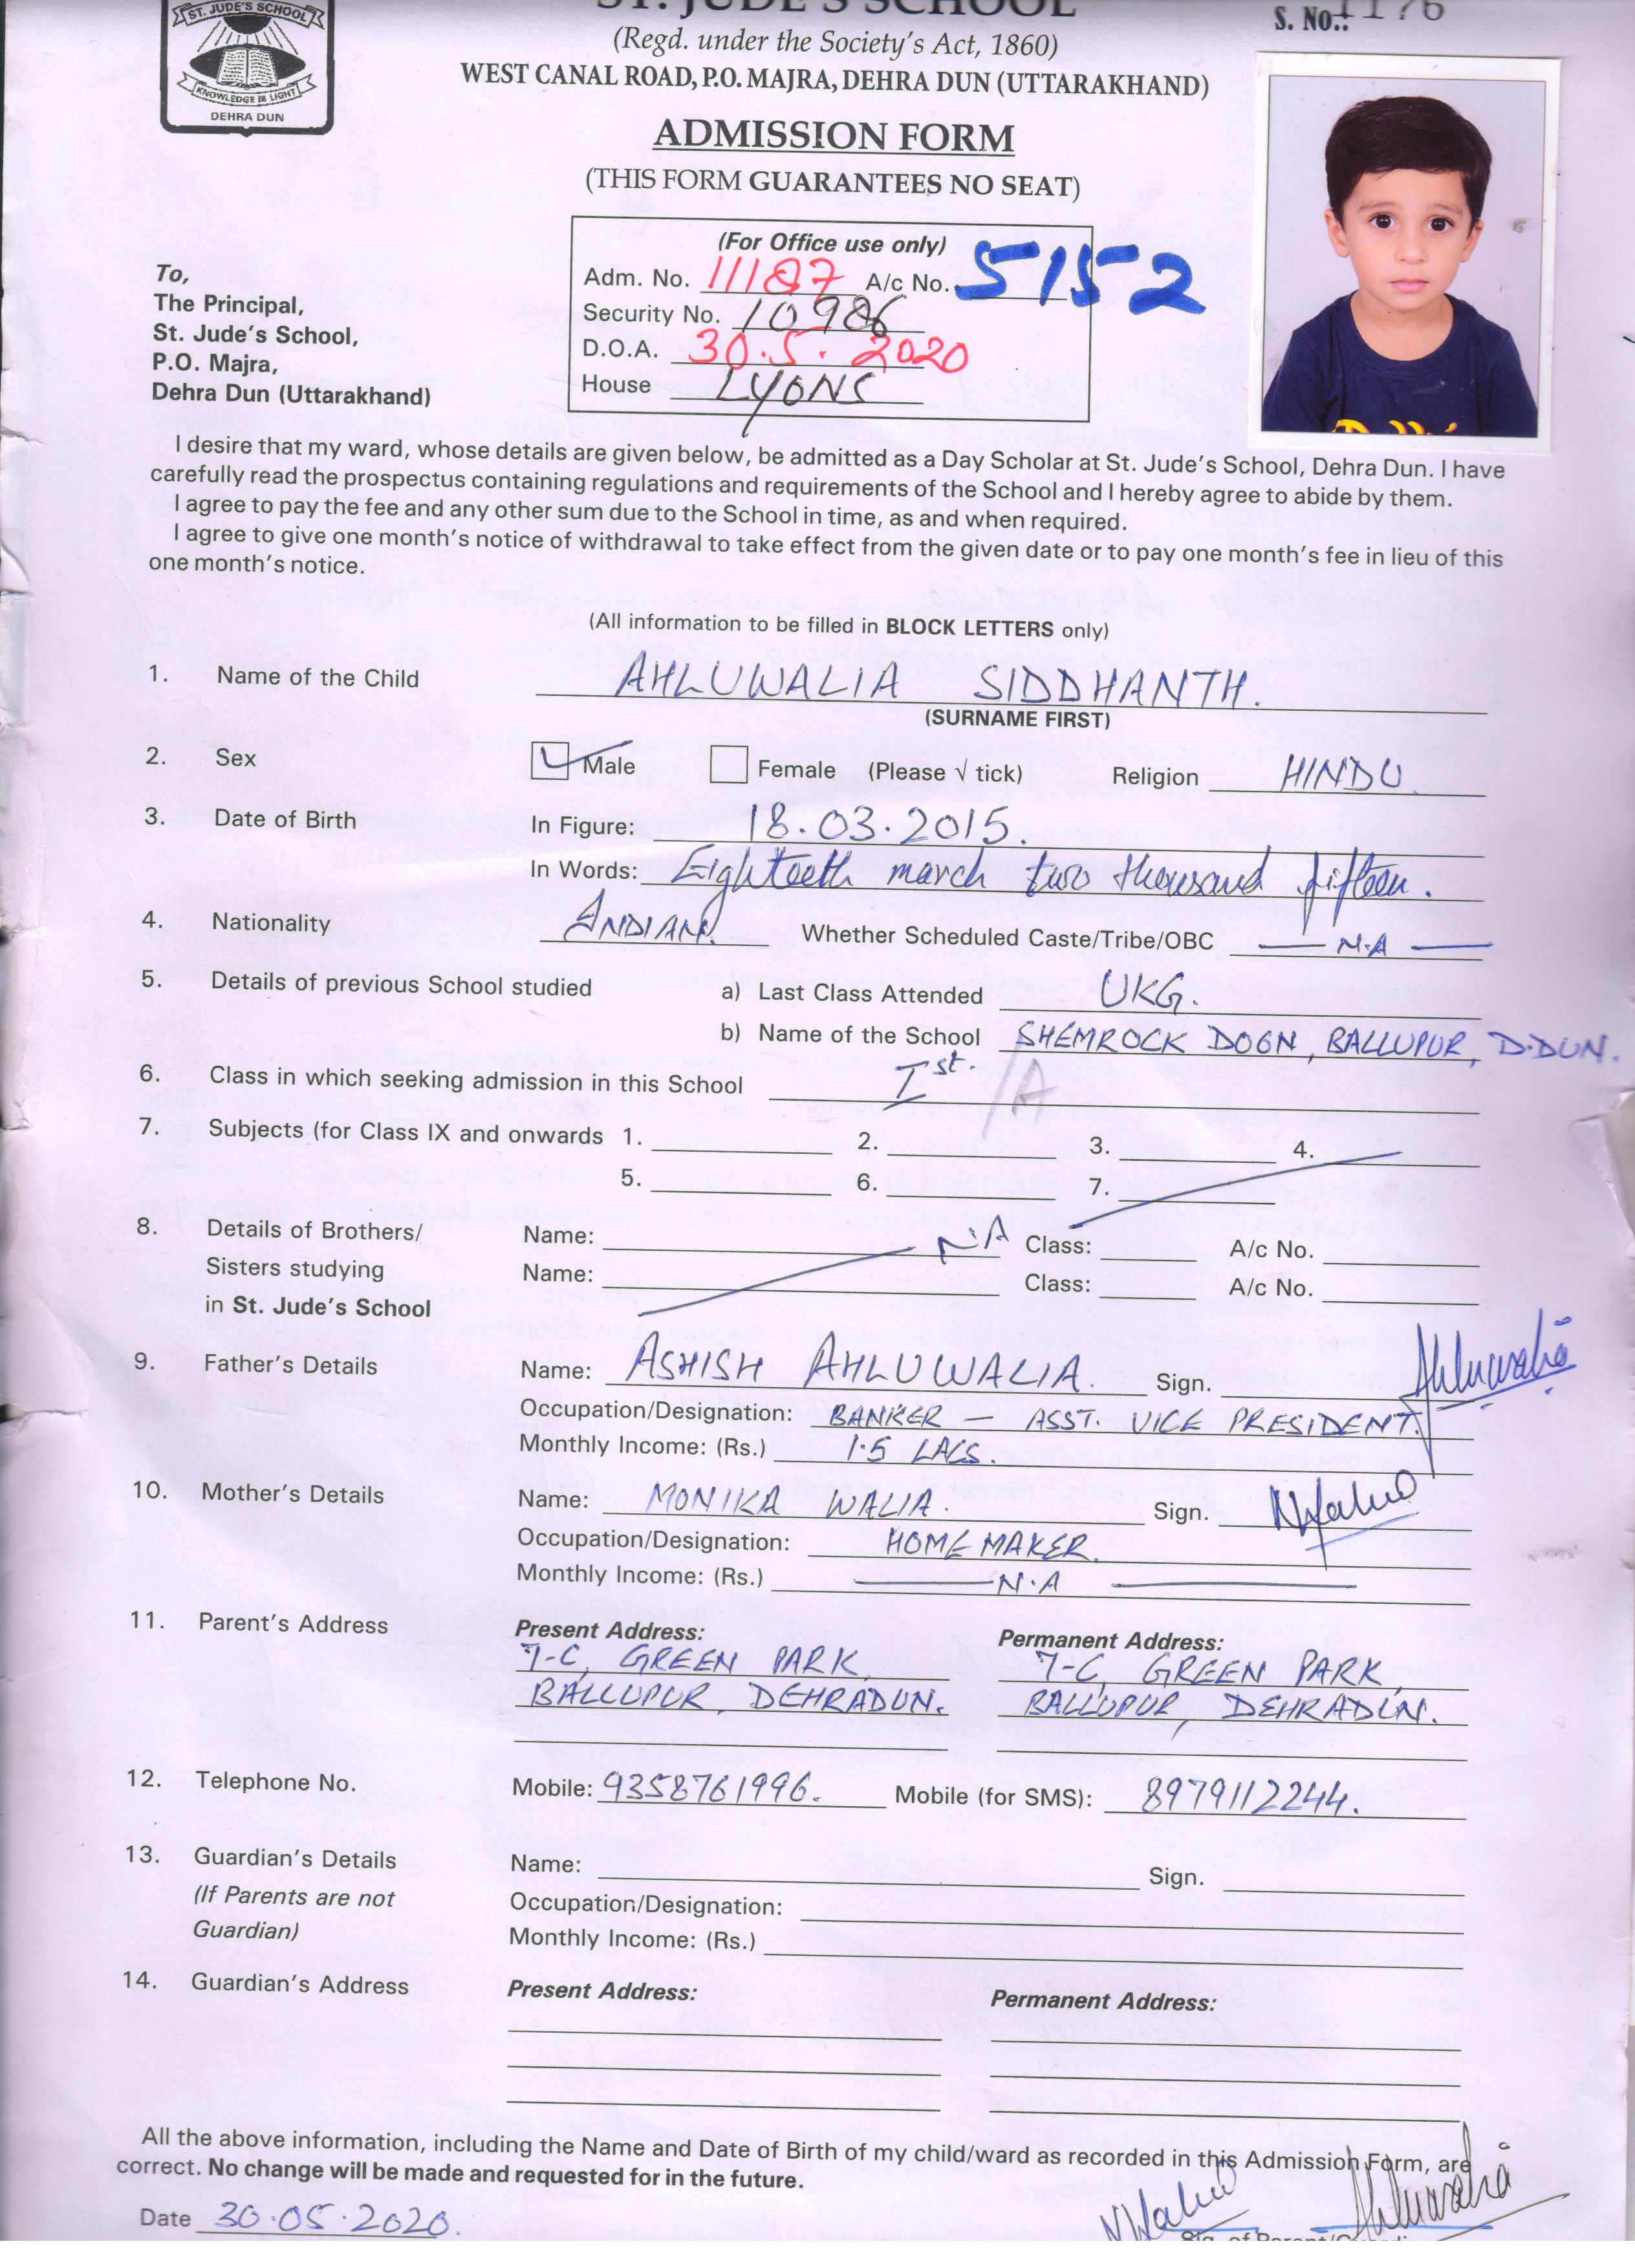 ST. JUDE'S SCHOOL
KNOWLEDGE IS LIGHT
DEHRA DUN
ST. JUDE'S SCHOOL
S. No.: 1176
(Regd. under the Society's Act, 1860)
WEST CANAL ROAD, P.O. MAJRA, DEHRA DUN (UTTARAKHAND)
ADMISSION FORM
(THIS FORM GUARANTEES NO SEAT)
(For Office use only)
Adm. No. 11187 A/c No. 5152
Security No. 10986
D.O.A. 30.5.2020
House LYONS
To,
The Principal,
St. Jude's School,
P.O. Majra,
Dehra Dun (Uttarakhand)
I desire that my ward, whose details are given below, be admitted as a Day Scholar at St. Jude's School, Dehra Dun. I have
carefully read the prospectus containing regulations and requirements of the School and I hereby agree to abide by them.
I agree to pay the fee and any other sum due to the School in time, as and when required.
I agree to give one month's notice of withdrawal to take effect from the given date or to pay one month's fee in lieu of this
one month's notice.
(All information to be filled in BLOCK LETTERS only)
1. Name of the Child AHLUWALIA SIDDHANTH.
(SURNAME FIRST)
2. Sex Male Female (Please √ tick) Religion HINDU
3. Date of Birth In Figure: 18.03.2015.
In Words: Eighteeth march two thousand fifteen.
4. Nationality INDIAN. Whether Scheduled Caste/Tribe/OBC — N.A —
5. Details of previous School studied a) Last Class Attended UKG.
b) Name of the School SHEMROCK DOON, BALLUPUR, D.DUN.
6. Class in which seeking admission in this School Ist. /A
7. Subjects (for Class IX and onwards 1. 2. 3. 4.
5. 6. 7.
8. Details of Brothers/ Name: N.A Class: A/c No.
Sisters studying Name: Class: A/c No.
in St. Jude's School
9. Father's Details Name: ASHISH AHLUWALIA. Sign. Ahluwalia
Occupation/Designation: BANKER — ASST. VICE PRESIDENT.
Monthly Income: (Rs.) 1.5 LACS.
10. Mother's Details Name: MONIKA WALIA. Sign.
Occupation/Designation: HOME MAKER.
Monthly Income: (Rs.) — N.A —
11. Parent's Address Present Address: Permanent Address:
7-C, GREEN PARK, 7-C, GREEN PARK,
BALLUPUR, DEHRADUN. BALLUPUR, DEHRADUN.
12. Telephone No. Mobile: 9358761996. Mobile (for SMS): 8979112244.
13. Guardian's Details Name: Sign.
(If Parents are not Occupation/Designation:
Guardian) Monthly Income: (Rs.)
14. Guardian's Address Present Address: Permanent Address:
All the above information, including the Name and Date of Birth of my child/ward as recorded in this Admission Form, are
correct. No change will be made and requested for in the future.
Date 30.05.2020. Ahluwalia